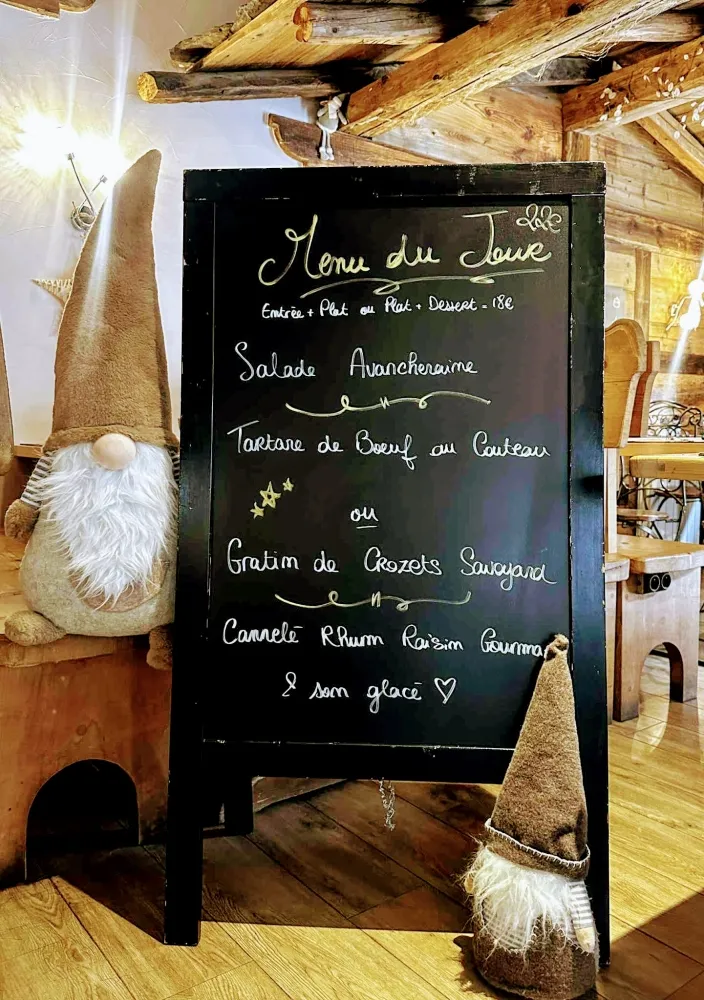 Menu du Jour 22€
Entrée + Plat ou Plat + Dessert = 18€
Salade Avancheraine
Tartare de Boeuf au Couteau
ou
Gratin de Crozets Savoyard
Cannelé Rhum Raisin
& son glacé ♡